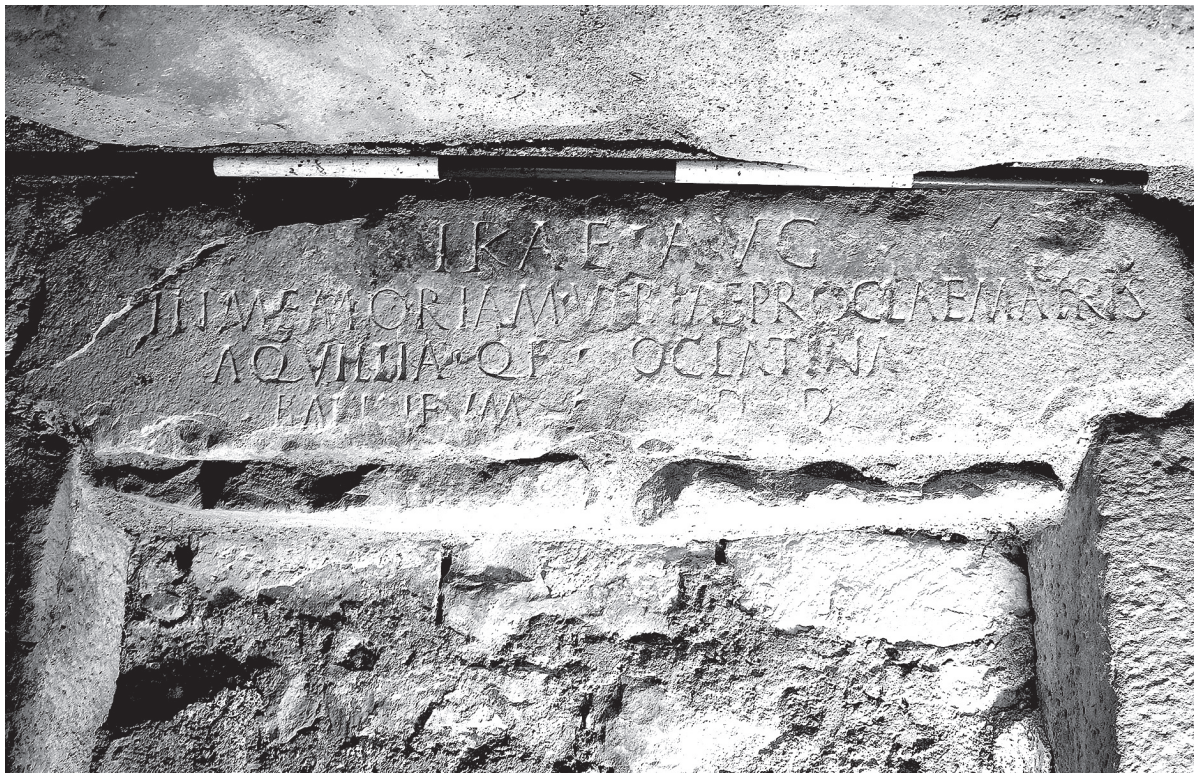 IRAE AVG
IN MEMORIAM VERIAE PROCLAE MATRIS
AQVILLIA · Q F · OCLATINA
D D